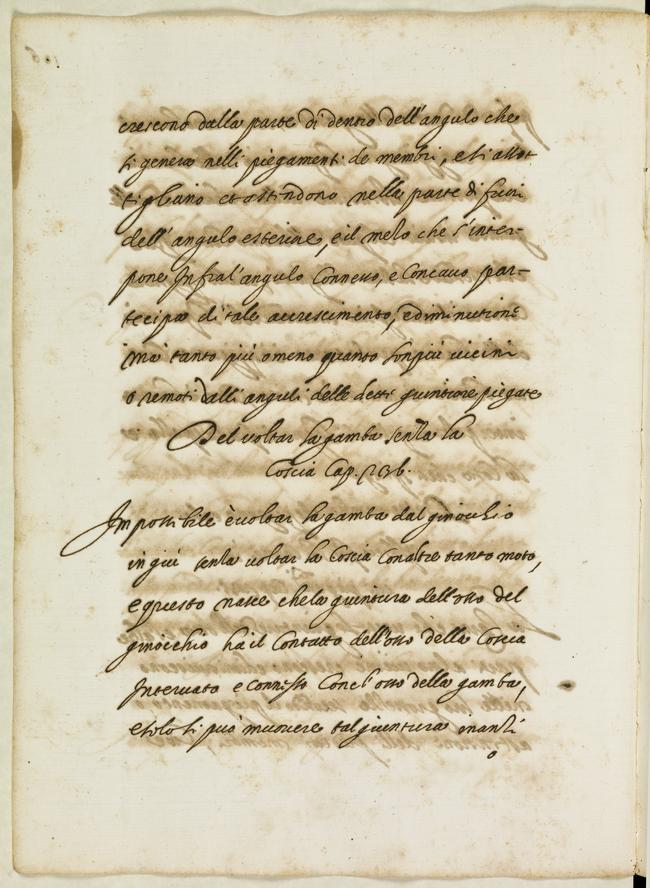 crescono dalla parte di dentro dell'angulo che
si genera nelli piegamenti de membri, e si assot
tigliano et ostendono nella parte di fuori
dell'angulo esteriore, e il mezo che s'inter-
pone Infra l'angulo Connesso, e Concauo par-
tecipa di tale accrescimento, e diminutione
ma tanto più o meno quanto son più uicini
o remoti dalli anguli delle dette giunture piegate
Del uoltar la gamba senza la
Coscia Cap. 136.
Impossibile è uoltar la gamba dal ginocchio
in giù senza uoltar la Coscia con altre tanto moto,
e questo nasce che la giuntura dell'osso del
ginocchio ha il Contatto dell'osso della Coscia
Internato e connesso Conel'osso della gamba,
e solo si può muouere tal giuntura inanzi
o